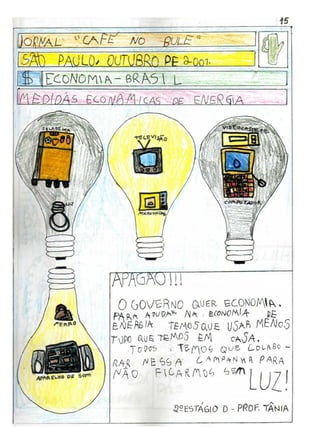 15
JORNAL "CAFÉ NO BULE"
SÃO PAULO, OUTUBRO DE 2001.
$ ECONOMIA - BRASIL
MEDIDAS ECONÔMICAS DE ENERGIA
GELADEIRA
TELEVISÃO
VIDEOCASSETE
LUZ
MICROONDAS
COMPUTADOR
FERRO
APARELHO DE SOM
APAGÃO!!!
O GOVERNO QUER ECONOMIA.
PARA AJUDAR NA ECONOMIA DE
ENERGIA TEMOS QUE USAR MENOS
TUDO QUE TEMOS EM CASA.
TODOS TEMOS QUE COLABO-
RAR NESSA CAMPANHA PARA
NÃO FICARMOS SEM
LUZ!
2º ESTÁGIO D - PROF. TÂNIA